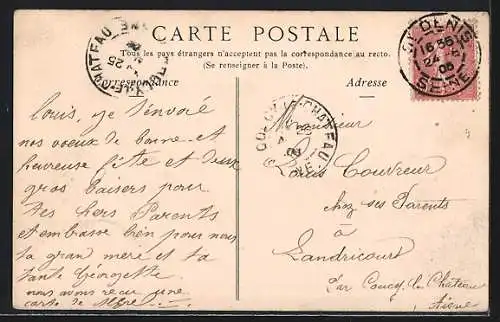 CARTE POSTALE
Tous les pays étrangers n'acceptent pas la correspondance au recto.
(Se renseigner à la Poste).
Correspondance
Adresse
ST DENIS
16 55
24
05
SEINE
CHATEAU
25
COUCY-LE-CHATEAU
Louis, je t'envoie
nos voeux de bonne et
heureuse fête et deux
gros baisers pour
tes hers Parents
et embasse bien pour nous
ta gran mère et ta
tante Géorgette
nous avons reçu une
carte de
Monsieur
Louis Couvreur
chez ses Parents
à
Landricourt
Par Coucy le Château
Aisne